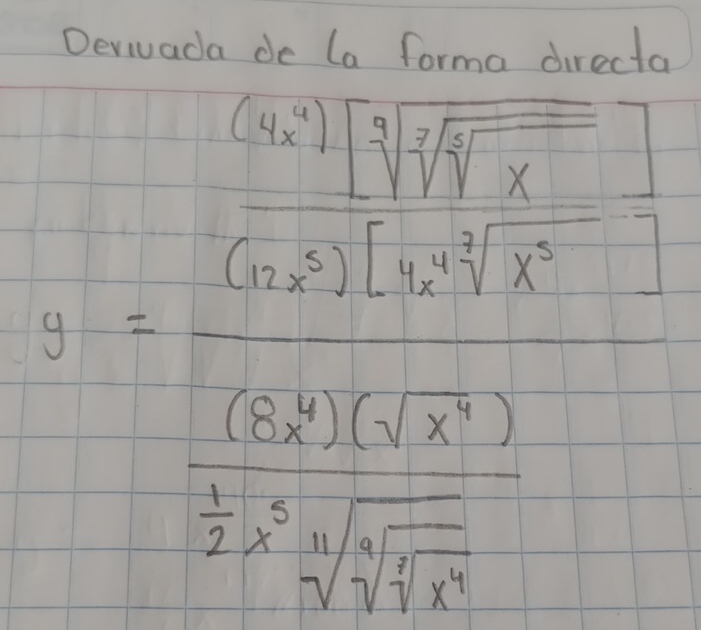 Derivada de la forma directa
(4x⁴) [⁹√⁷√⁵√x]
(12x⁵) [4x⁴ ⁷√x⁵]
y =
(8x⁴)(√x⁴)
1/2 x⁵ ¹¹√⁹√⁷√x⁴